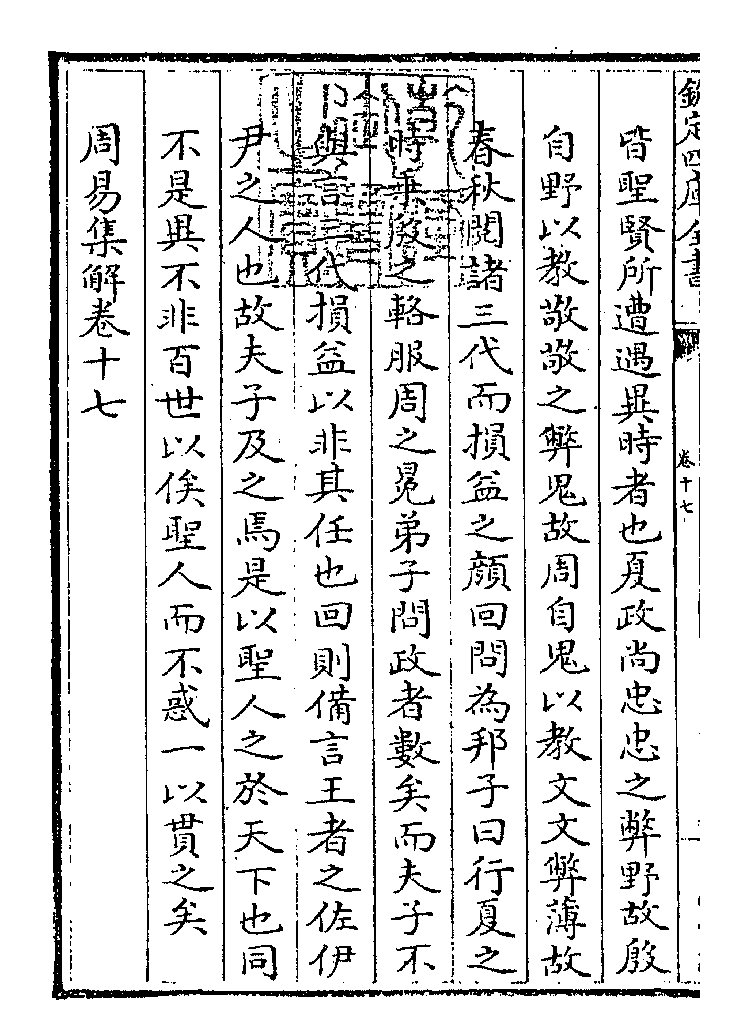 欽定四庫全書
卷十七
皆聖賢所遭遇異時者也夏政尚忠忠之弊野故殷
自野以教敬敬之弊鬼故周自鬼以教文文弊薄故
春秋閱諸三代而損益之顔回問為邦子曰行夏之
時乘殷之輅服周之冕弟子問政者數矣而夫子不
與言三代損益以非其任也回則備言王者之佐伊
尹之人也故夫子及之焉是以聖人之於天下也同
不是異不非百世以俟聖人而不惑一以貫之矣
周易集解卷十七